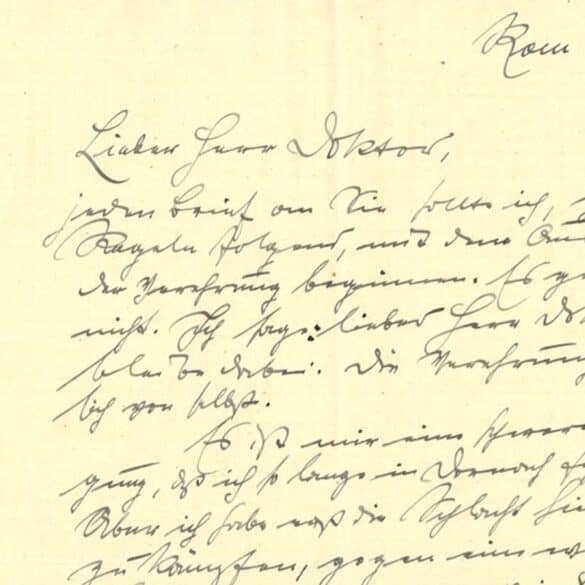 Rom
Lieber Herr Doktor,
jeden Brief an Sie sollte ich,
Regeln folgend, mit dem
der Verehrung beginnen. Es
nicht. Ich sage: lieber Herr Dok
bleibe dabei. Die Verehrun
sich von selbst.
Es ist mir eine schwer
gung, daß ich so lange in Dornach
Aber ich habe erst die Schlacht
zu kämpfen, gegen eine